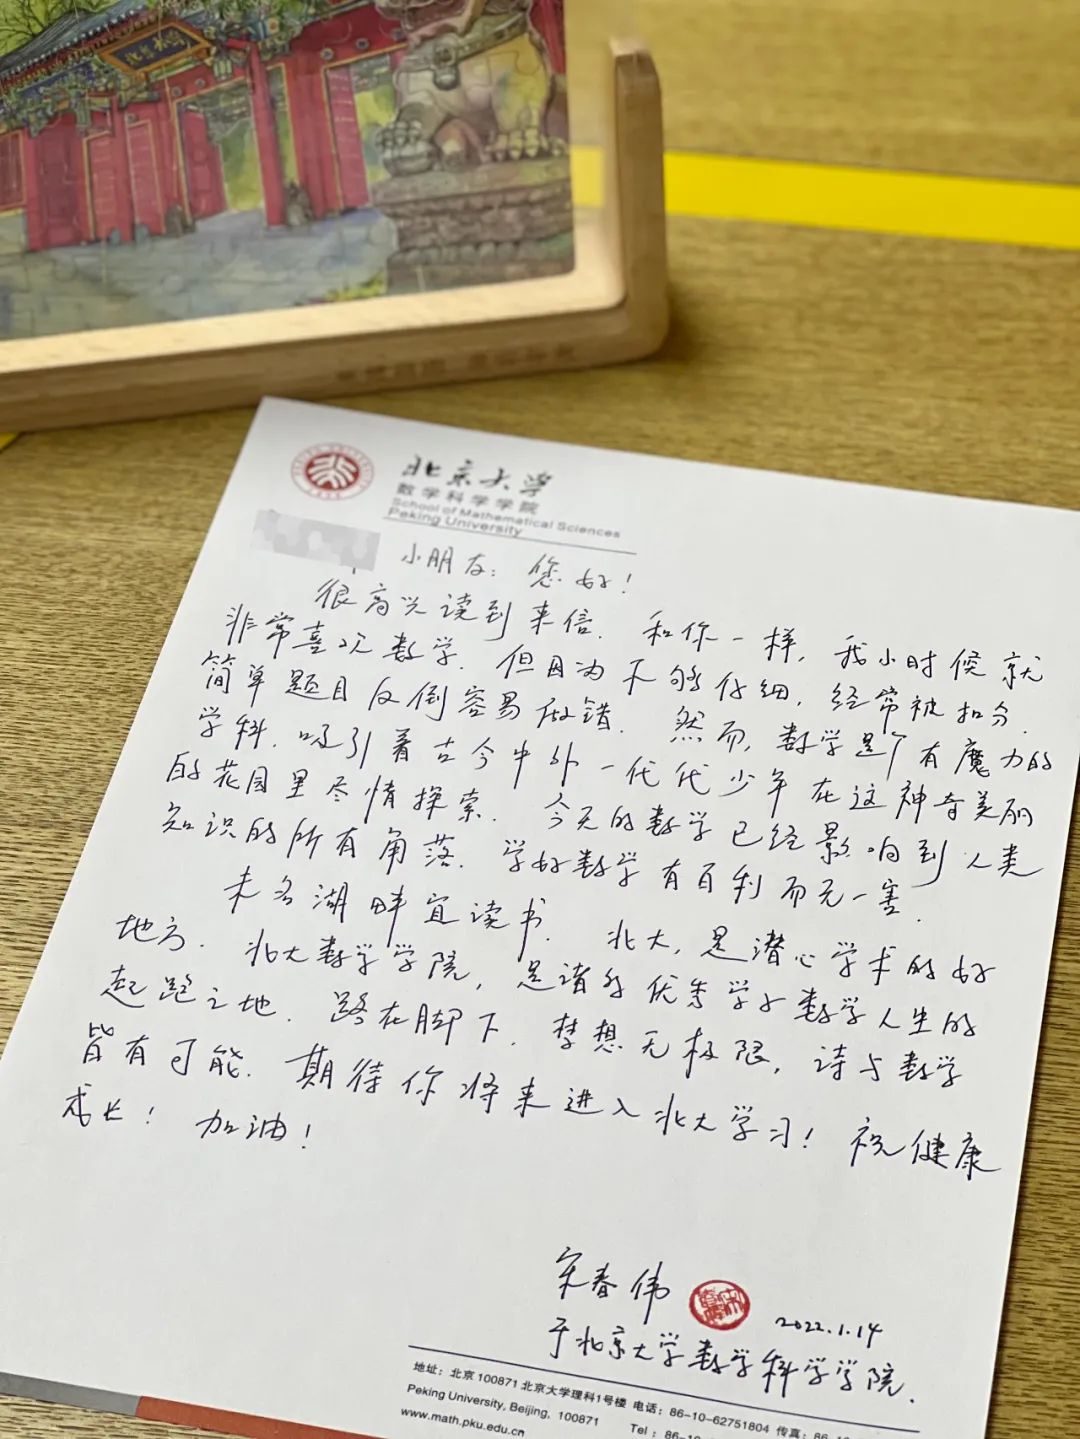 北京大学
数学科学学院
School of Mathematical Sciences
Peking University
小朋友：您好！
很高兴读到来信. 和你一样, 我小时候就
非常喜欢数学. 但因为不够仔细, 经常被扣分.
简单题目反倒容易做错. 然而, 数学是个有魔力的
学科. 吸引着古今中外一代代少年在这神奇美丽
的花园里尽情探索. 今天的数学已经影响到人类
知识的所有角落. 学好数学有百利而无一害.
未名湖畔宜读书. 北大, 是潜心学术的好
地方. 北大数学学院, 是诸多优秀学子数学人生的
起跑之地. 路在脚下. 梦想无极限, 诗与数学
皆有可能. 期待你将来进入北大学习! 祝健康
成长! 加油!
宋春伟
2022.1.14
于北京大学数学科学学院.
地址：北京 100871 北京大学理科1号楼 电话：86-10-62751804 传真：86-10
Peking University, Beijing, 100871 Tel：86-10
www.math.pku.edu.cn